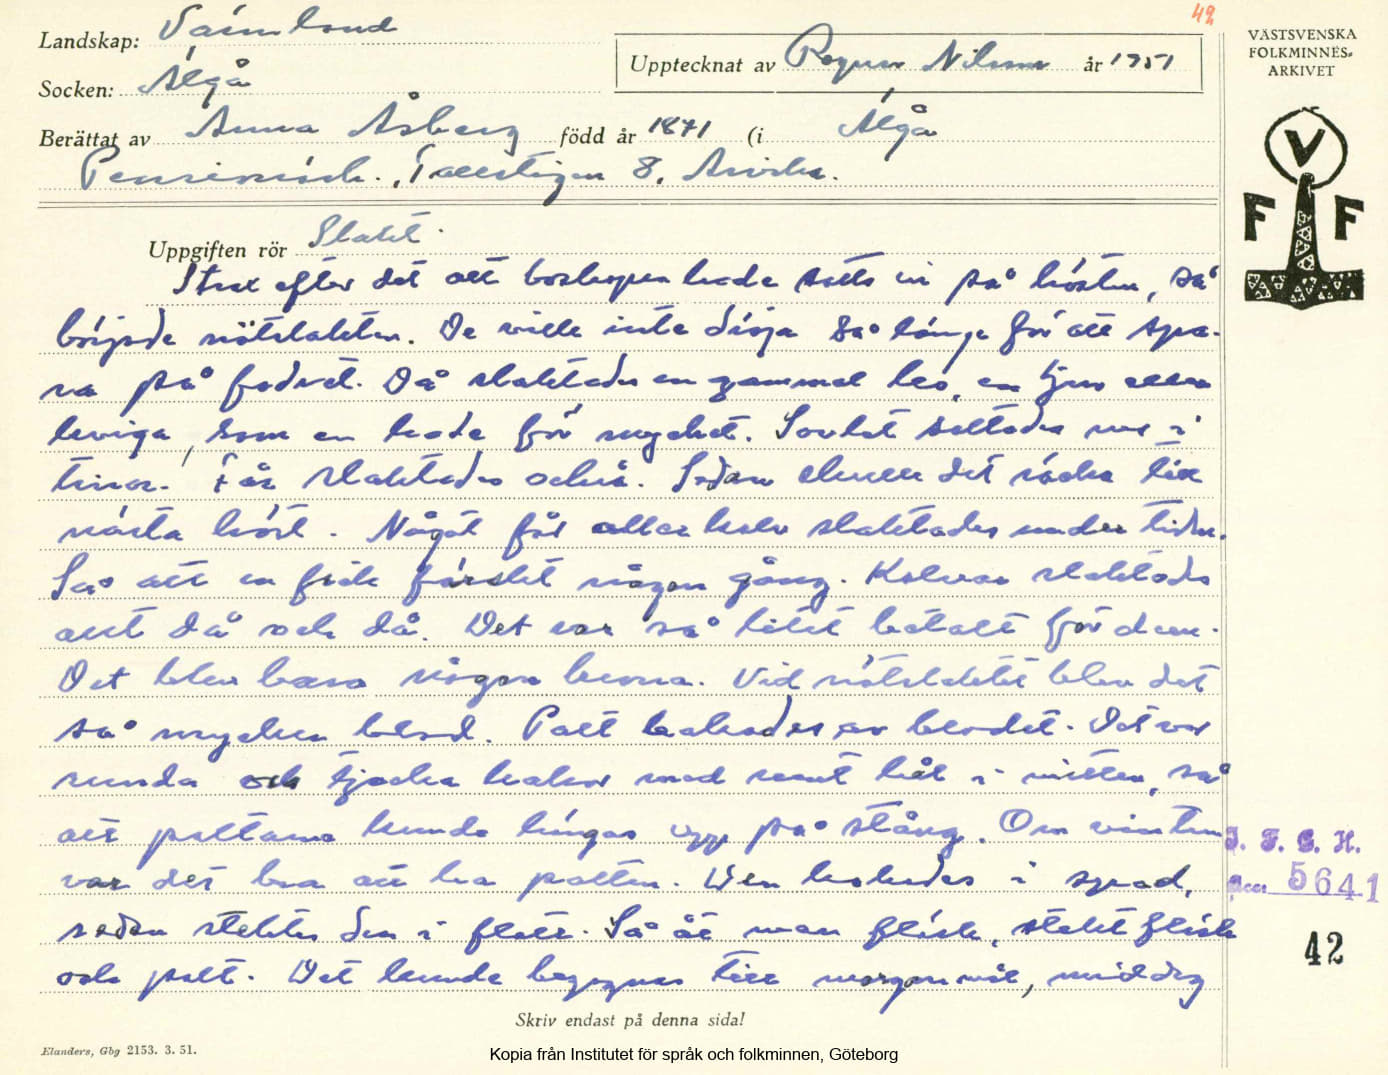 42
Landskap: Värmland
Socken: Älgå
Upptecknat av Ragnar Nilsson år 1951
Berättat av Anna Åsberg född år 1871 (i Älgå
Pensionärh., Tallstigen 8, Arvika.
VÄSTSVENSKA
FOLKMINNES-
ARKIVET
V
F F
Uppgiften rör Slakt.
Strax efter det att boskapen hade satts in på hösten, så
började nötslakten. De ville inte dröja så länge för att spa-
ra på fodret. Då slaktades en gammal ko, en tjur eller
kviga, som en hade för mycket. Sovlet saltades ner i
tinor. Får slaktades också. Sedan skulle det räcka till
nästa höst. Något får eller kalv slaktades under tiden.
Så att en fick färskt någon gång. Kalvar slaktades
allt då och då. Det var så litet betalt för dem.
Det blev bara någon krona. Vid nötslaktet blev det
så mycken blod. Palt bakades av blodet. Det var
runda och tjocka kakor med runt hål i mitten, så
att paltarna kunde hängas upp på stång. Om vintern
var det bra att ha palten. Den kokades i spad,
sedan stektes den i flott. Så åt man fläsk, stekt fläsk
och palt. Det kunde begagnas till morgonmål, middag
I. F. G. H.
Acc. 5641
42
Skriv endast på denna sida!
Elanders, Gbg 2153. 3. 51.
Kopia från Institutet för språk och folkminnen, Göteborg